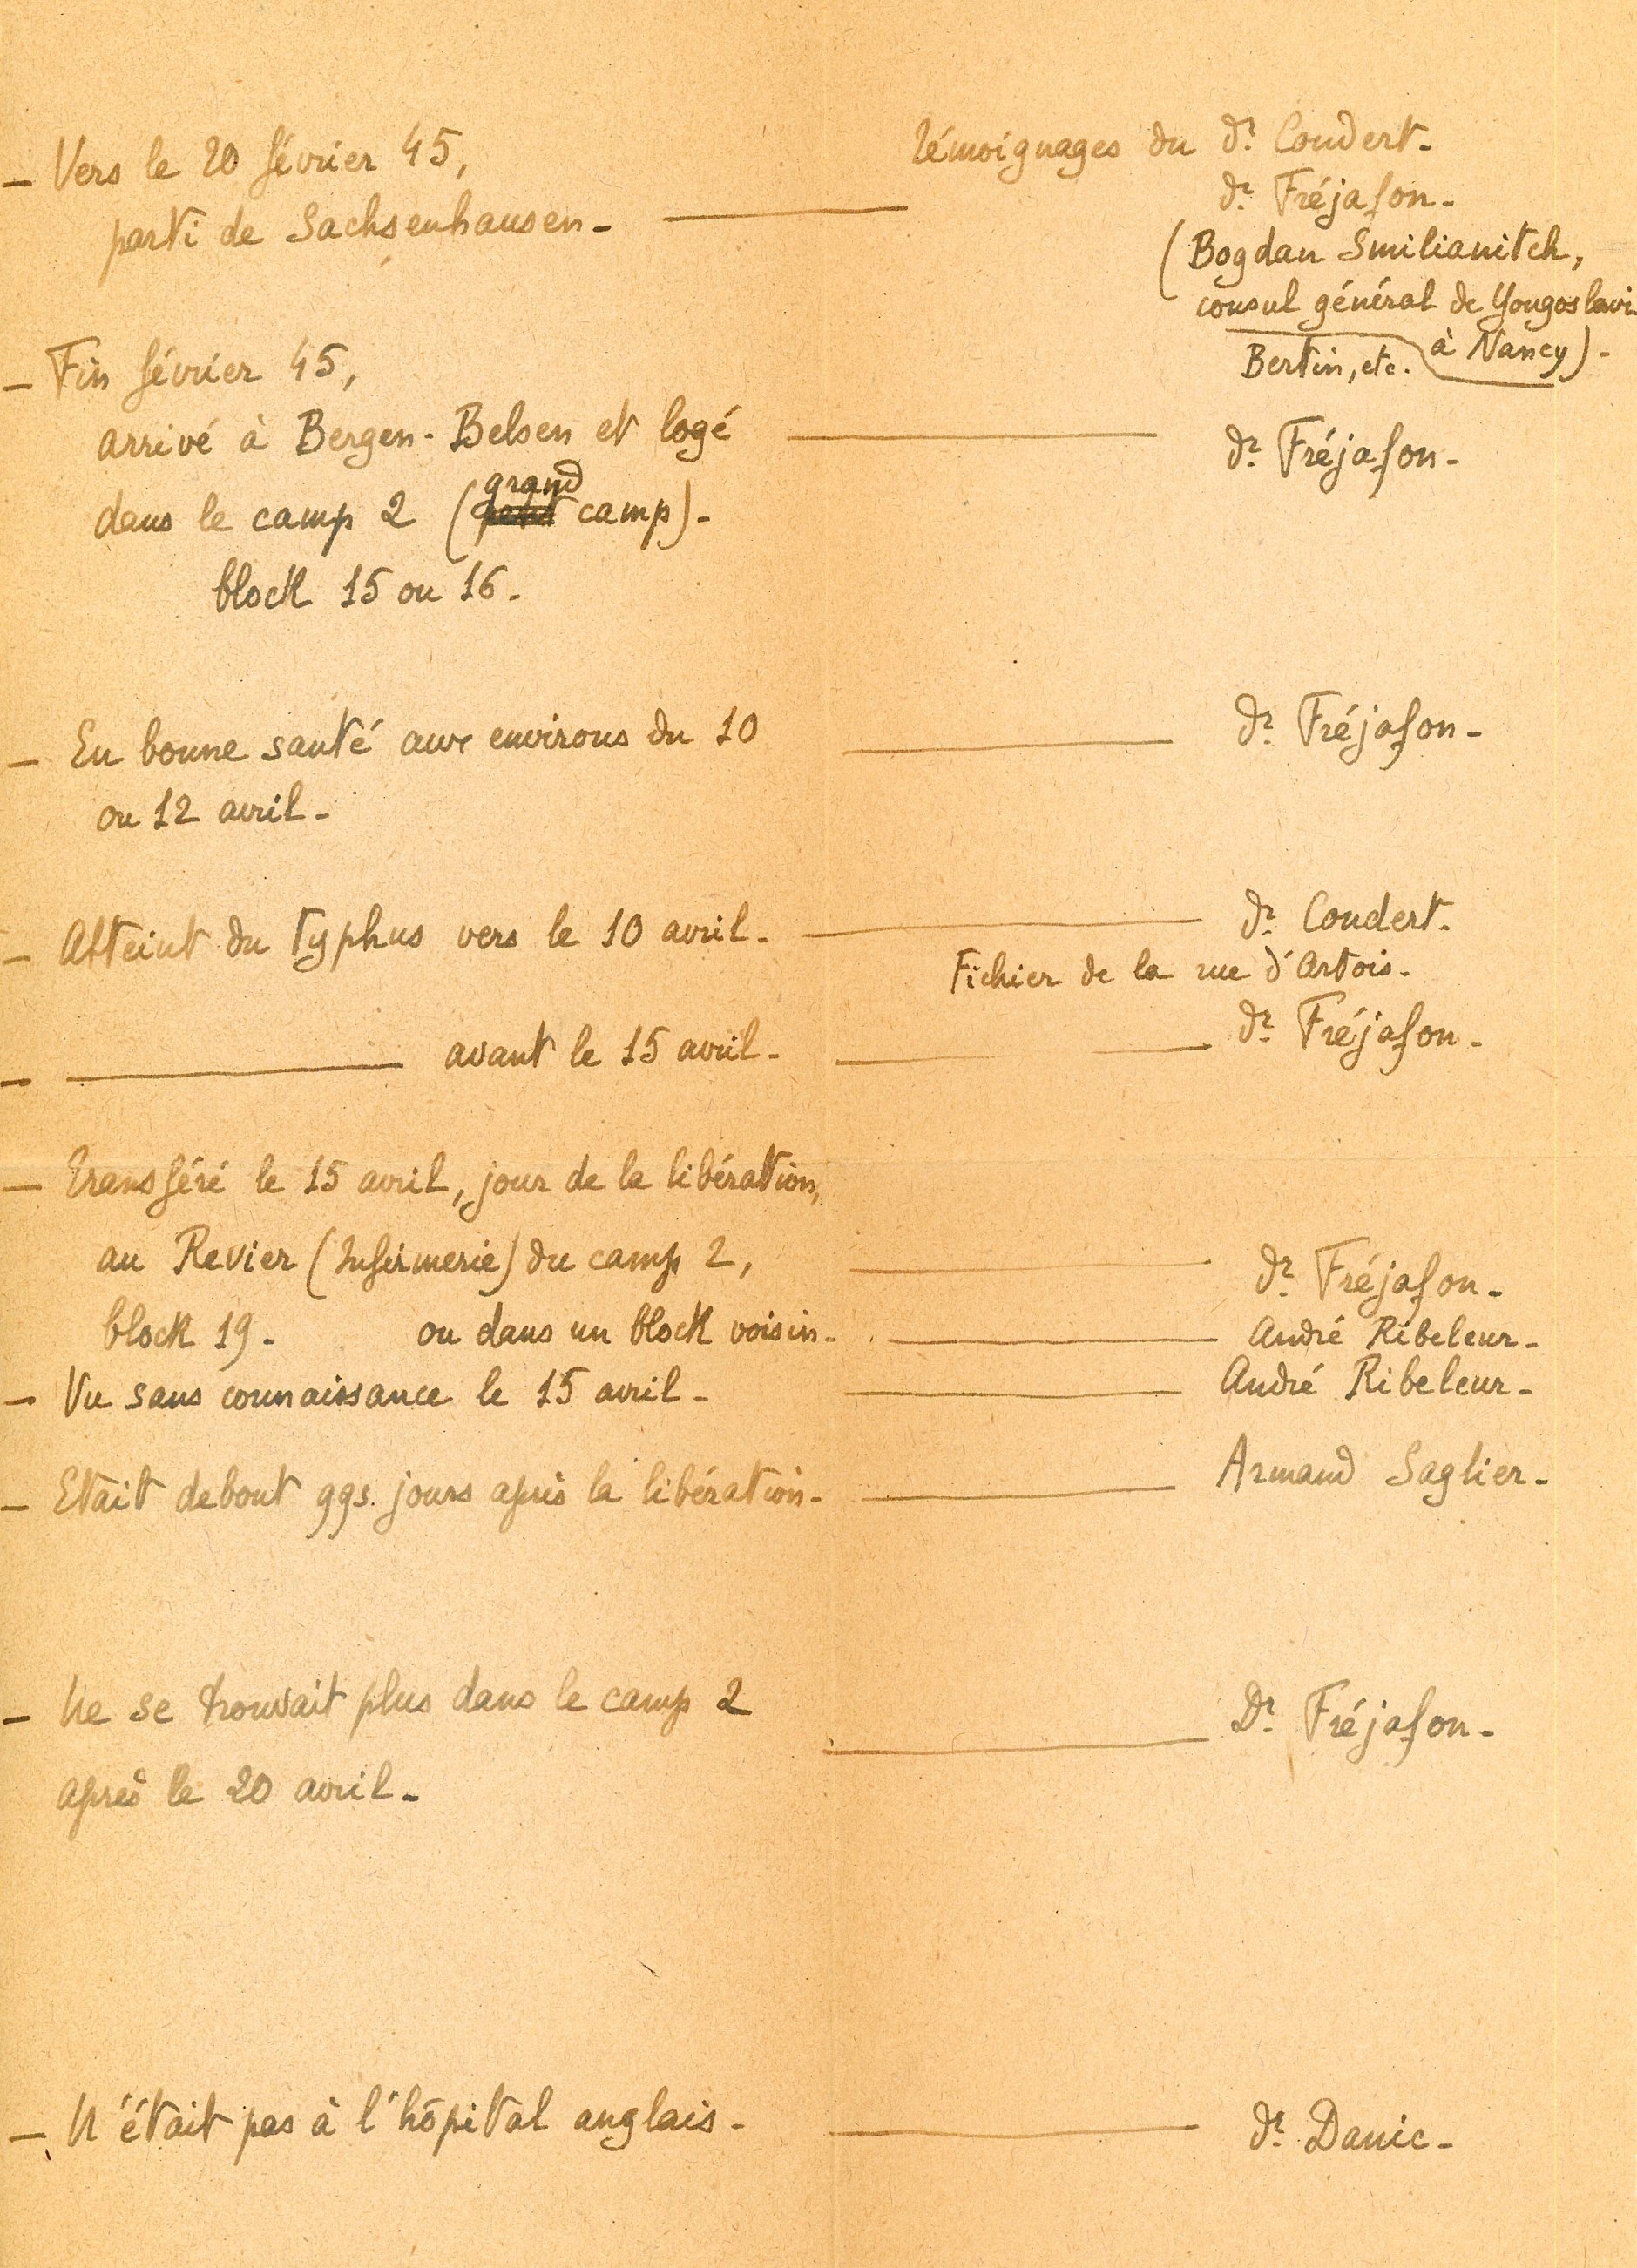 – Vers le 20 février 45,
parti de Sachsenhausen –
Témoignages du dr. Coudert –
dr. Fréjafon –
(Bogdan Smilianitch,
consul général de Yougoslavi
à Nancy) –
Bertin, etc.
– Fin février 45,
arrivé à Bergen-Belsen et logé
dr. Fréjafon –
grand
dans le camp 2 (petit camp) –
block 15 ou 16 –
– En bonne santé aux environs du 10
dr. Fréjafon –
ou 12 avril –
– Atteint du typhus vers le 10 avril –
dr. Coudert –
Fichier de la rue d'Artois –
– ——— avant le 15 avril –
dr. Fréjafon –
– Transféré le 15 avril, jour de la libération,
au Revier (Infirmerie) du camp 2,
dr. Fréjafon –
block 19 – ou dans un block voisin –
André Ribeleur –
– Vu sans connaissance le 15 avril –
André Ribeleur –
– Etait debout qqs. jours après la libération –
Armand Saglier –
– Ne se trouvait plus dans le camp 2
Dr. Fréjafon –
après le 20 avril –
– N'était pas à l'hôpital anglais –
dr. Danic –